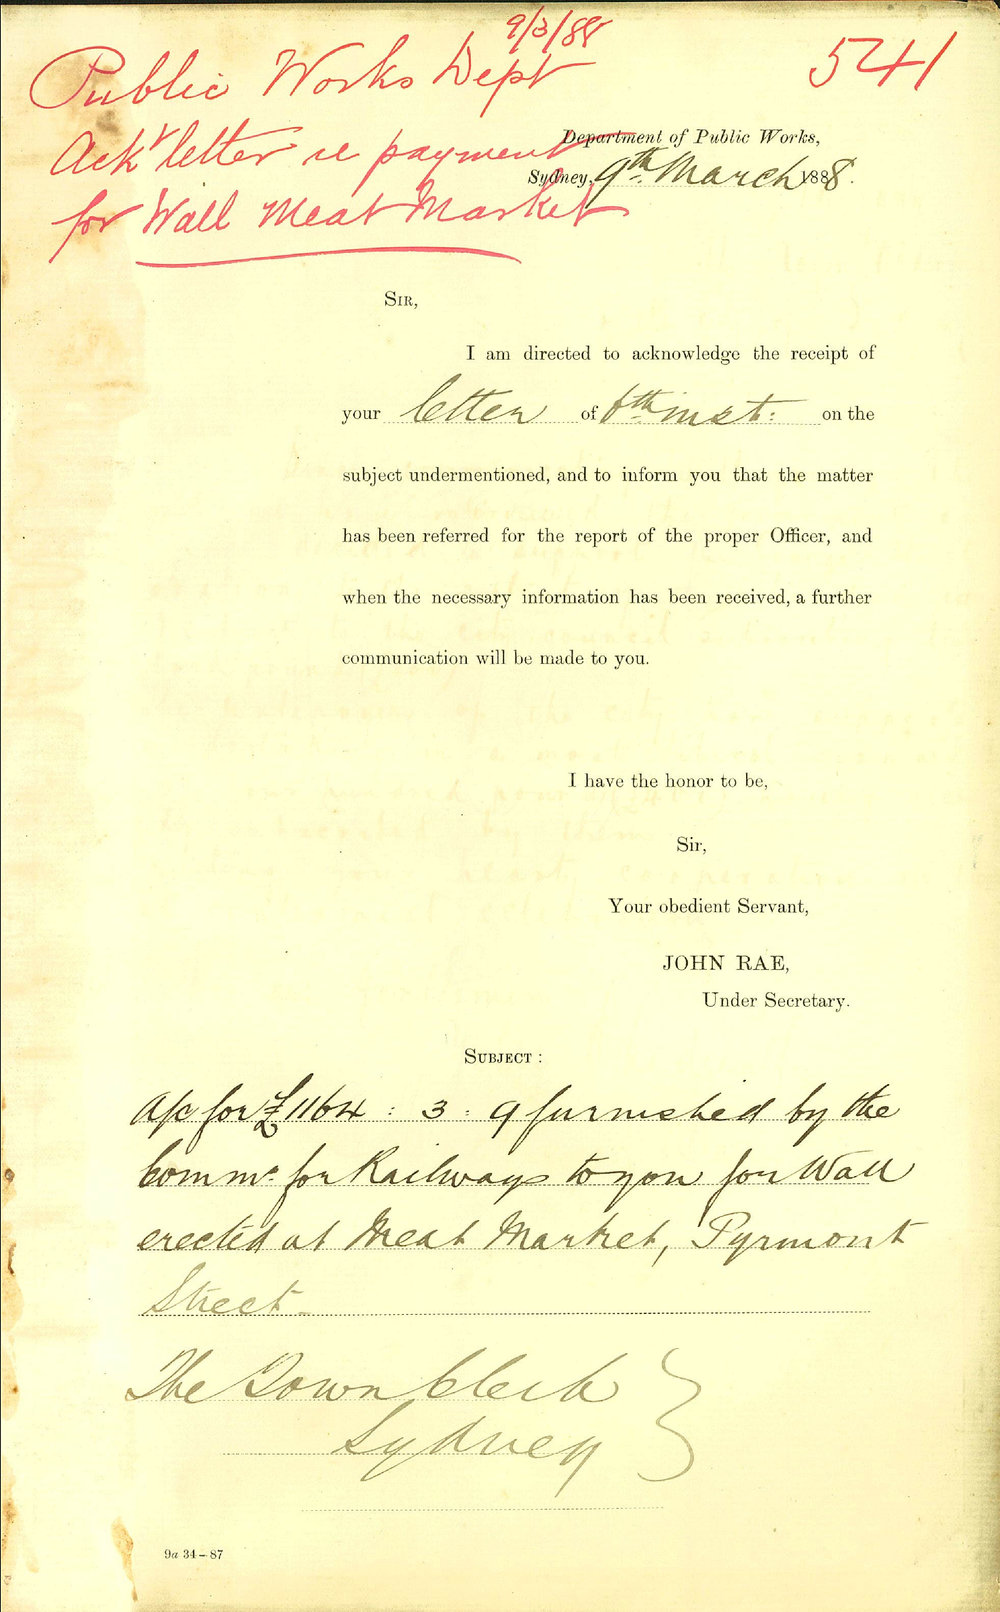 9/3/88
541
Public Works Dept
Ackr letter re payment
for Wall Meat Market
Department of Public Works,
Sydney, 9th March 1888.
SIR,
I am directed to acknowledge the receipt of
your letter of 6th inst: on the
subject undermentioned, and to inform you that the matter
has been referred for the report of the proper Officer, and
when the necessary information has been received, a further
communication will be made to you.
I have the honor to be,
Sir,
Your obedient Servant,
JOHN RAE,
Under Secretary.
SUBJECT :
A/c for £1164 : 3 : 9 furnished by the
Commr. for Railways to you for Wall
erected at Meat Market, Pyrmont
Street
The Town Clerk
Sydney
9a 34–87